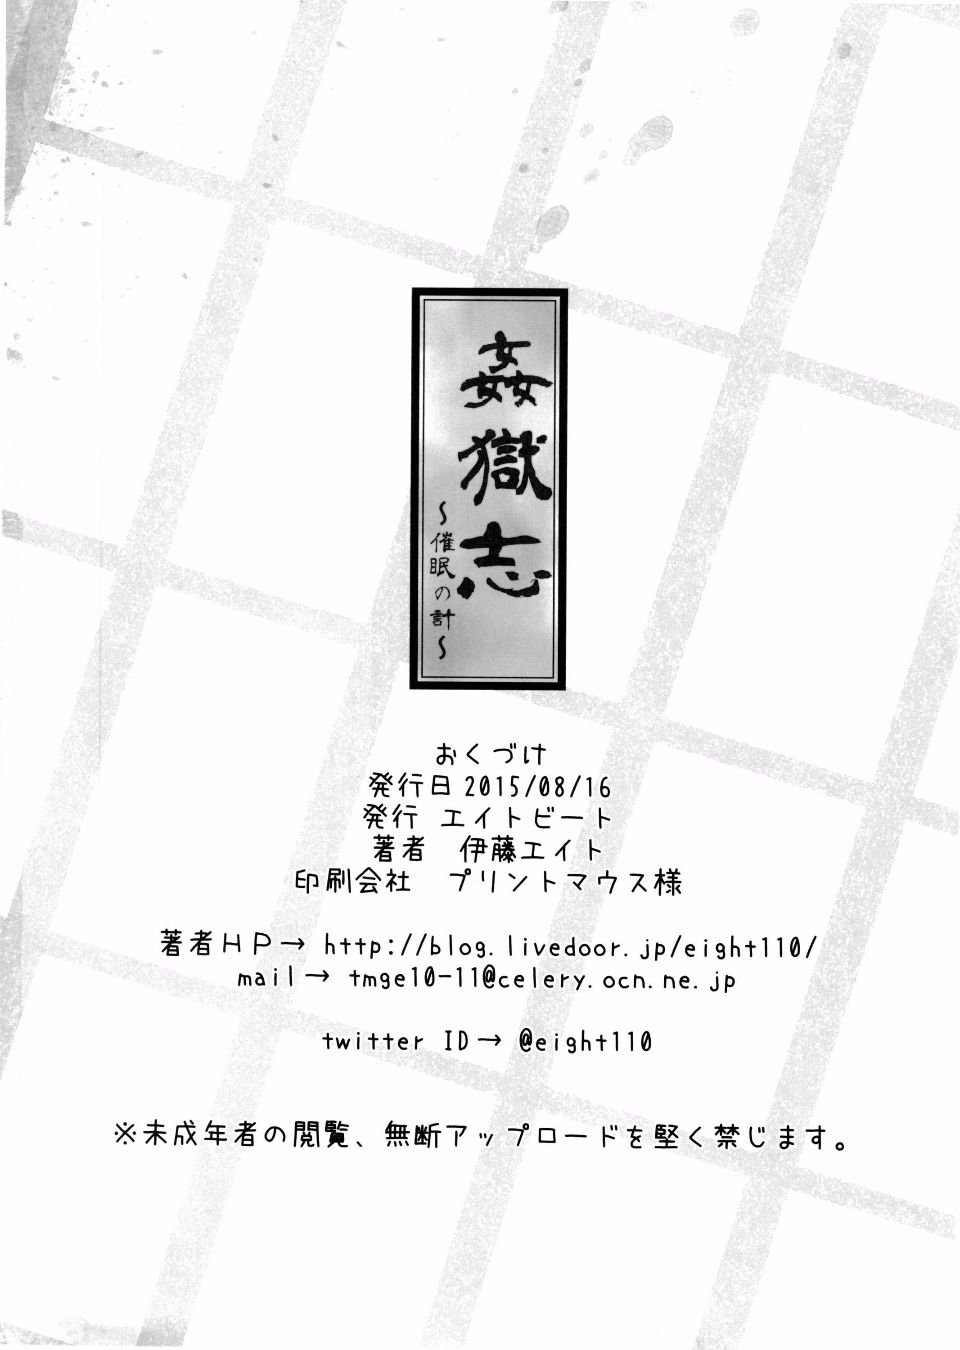 姦獄志
～催眠の計～
おくづけ
発行日 2015/08/16
発行 エイトビート
著者 伊藤エイト
印刷会社 プリントマウス様
著者HP→ http://blog.livedoor.jp/eight110/
mail→ tmge10-11@celery.ocn.ne.jp
twitter ID→ @eight110
※未成年者の閲覧、無断アップロードを堅く禁じます。